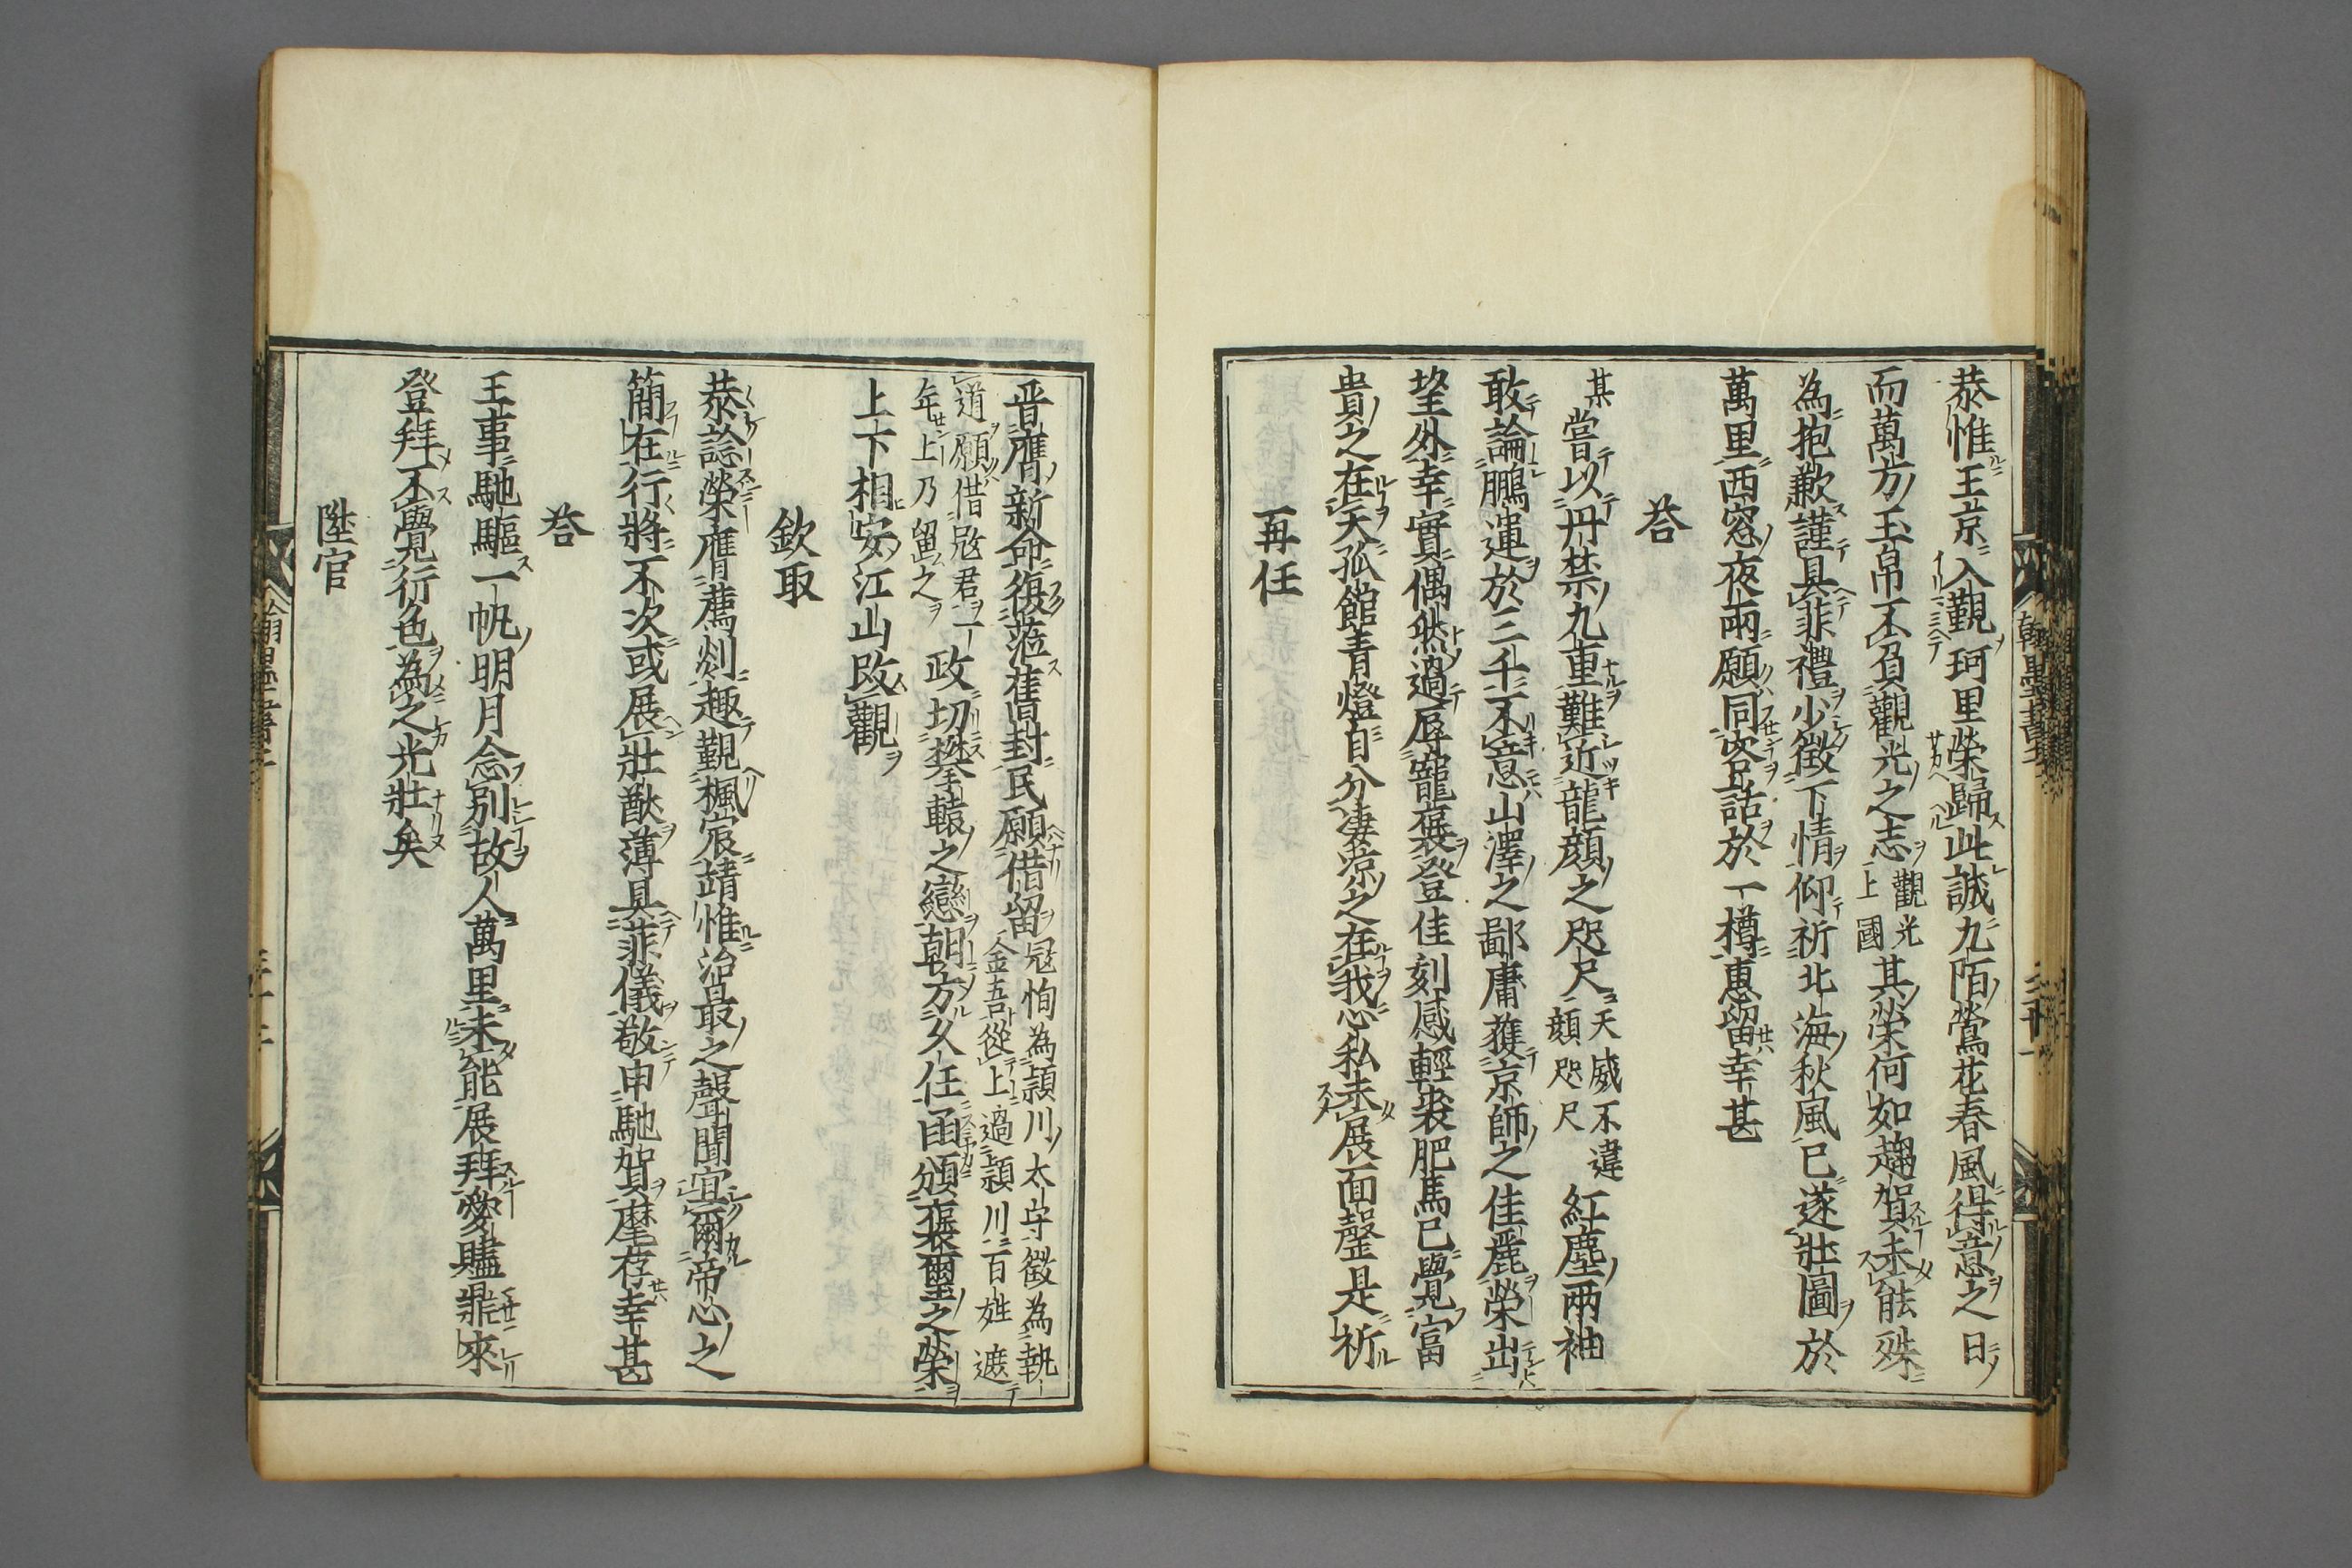 恭惟王京入覲珂里榮歸此誠九陌鶯花春風得意之日
而萬方玉帛不負觀光之志觀光上國其榮何如趨賀未能殊
為抱歉謹具菲禮少徵下情仰祈北海秋風已遂壯圖於
萬里西窓夜雨願同客話於一樽惠留幸甚
荅
某嘗以丹禁九重難近龍顔之咫尺天威不違顔咫尺紅塵兩袖
敢論鵬運於三千不意山澤之鄙庸獲京師之佳麗榮出
望外幸實偶然過辱寵褒登佳刻感輕裘肥馬已覺富
貴之在天孤館青燈自分凄凉之在我忩私未展面罄是祈
再任
晋膺新命復蒞舊封民願借留冦恂為頴川太守徵為執金吾從上過頴川百姓遮
道願借冦君一年上乃留之政切攀轅之戀朝方久任函頒褒璽之榮
上下相安江山改觀
欽取
恭諗榮膺薦剡趣覲楓宸請惟治最之聲聞宜爾帝心之
簡在行將不次或展壯猷薄具菲儀敬申馳賀麾存幸甚
荅
王事馳驅一帆明月念別故人萬里未能展拜愛贐鼎來
登拜不覺行色為之光壯矣
陞官